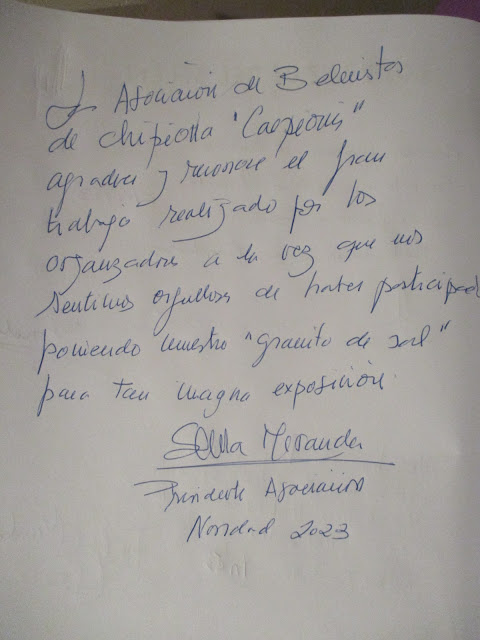 La Asociación de Belenistas
de Chipiona "Caepionis"
agradece y reconoce el gran
trabajo realizado por los
organizadores a la vez que nos
sentimos orgullosos de haber participado
poniendo nuestro "granito de sal"
para tan magna exposición.
Miranda
Presidente Asociación
Navidad 2023